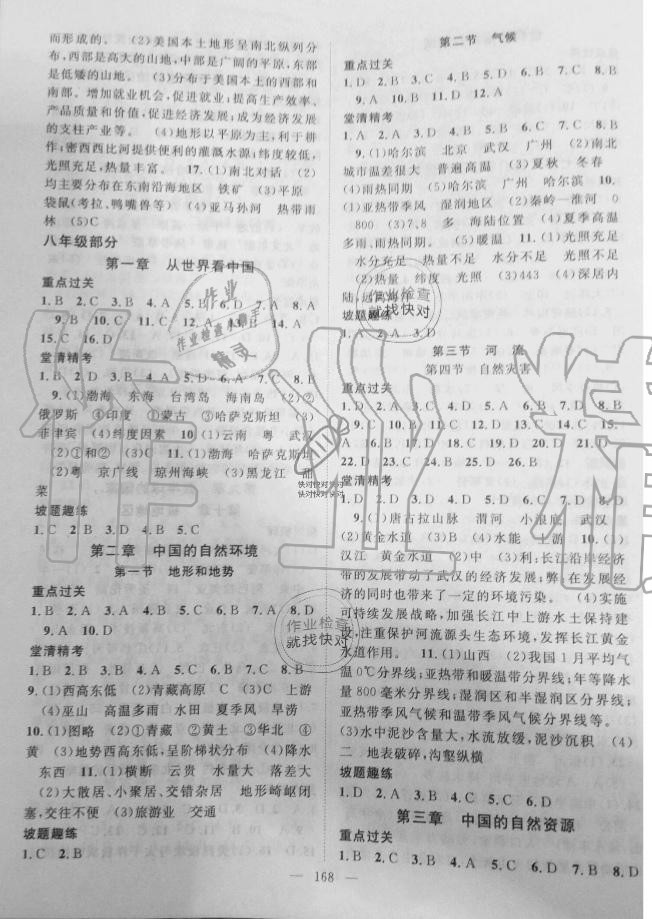 而形成的。 (2)美国本土地形呈南北纵列分
布,西部是高大的山地,中部是广阔的平原,东部
是低矮的山地。 (3)分布于美国本土的西部和
南部。增加就业机会,促进就业,提高生产效率、
产品质量和价值,促进经济发展;成为经济发展
的支柱产业等。 (4)地形以平原为主,利于耕
作;密西西比河提供便利的灌溉水源;纬度较低,
光照充足,热量丰富。 17.(1)南北对话 (2)
均主要分布在东南沿海地区 铁矿 (3)平原
袋鼠(考拉、鸭嘴兽等) (4)亚马孙河 热带雨
林 (5)C
八年级部分
第一章 从世界看中国
重点过关
1.B 2.C 3.B 4.A 5.B 6.D 7.C 8.A
9.B 10.C 11.C 12.B 13.B 14.A
15.C 16.D
堂清精考
1.B 2.D 3.D 4.A 5.C 6.A 7.B 8.C
9.(1)渤海 东海 台湾岛 海南岛 (2)②
俄罗斯 ④印度 ①蒙古 ③哈萨克斯坦 (3)
菲律宾 (4)纬度因素 10.(1)云南 粤 武汉
(2)①和② (3)C 11.(1)渤海 哈萨克斯坦
(2)粤 京广线 琼州海峡 (3)黑龙江 甜
菜
坡题趣练
1.C 2.B 3.D 4.B 5.C
第二章 中国的自然环境
第一节 地形和地势
重点过关
1.B 2.D 3.B 4.A 5.D 6.C 7.D 8.B
9.A 10.D
堂清精考
1.B 2.A 3.C 4.B 5.A 6.C 7.B 8.D
9.(1)西高东低 (2)青藏高原 C (3)C 上游
(4)巫山 高温多雨 水田 夏季风 旱涝
10.(1)图略 (2)①青藏 ②黄土 ③华北 ④
黄 (3)地势西高东低,呈阶梯状分布 (4)降水
东西 11.(1)横断 云贵 水量大 落差大
(2)大散居、小聚居、交错杂居 地形崎岖闭
塞,交往不便 (3)旅游业 交通
坡题趣练
1.C 2.B
第二节 气候
重点过关
1.B 2.C 3.B 4.B 5.D 6.B 7.C 8.B
9.A 10.B 11.D 12.A
堂清精考
1.A 2.B 3.D 4.C 5.D 6.D 7.A 8.B
9.(1)哈尔滨 北京 武汉 广州 (2)南北
城市温差很大 普遍高温 (3)夏秋 冬春
(4)雨热同期 哈尔滨 广州 哈尔滨 10.
(1)亚热带季风 湿润地区 (2)秦岭—淮河 0
800 (3)7、8 多 海陆位置 (4)夏季高温
多雨、雨热同期。 (5)暖温 11.(1)光照充足
水分充足 热量不足 光照充足 水分不足
(2)热量 纬度 光照 (3)443 (4)深居内
陆,远离海洋
坡题趣练
1.A 2.A 3.D
第三节 河流
第四节 自然灾害
重点过关
1.D 2.A 3.B 4.D 5.D 6.A 7.D 8.B
9.C 10.B 11.C 12.D 13.B 14.C 15.
A 16.B 17.D 18.D 19.D 20.B 21.D
22.B 23.A 24.D 25.D 26.B
堂清精考
1.D 2.D 3.D 4.C 5.D 6.B 7.A 8.D
9.(1)唐古拉山脉 渭河 小浪底 武汉
(2)黄金水道 (3)水能 上游 10.(1)
汉江 黄金水道 (2)中 (3)利:长江沿岸经济
带的发展带动了武汉的经济发展;弊:在发展经
济的同时也带来了一定的环境污染。 (4)实施
可持续发展战略,加强长江中上游水土保持建
设,注重保护河流源头生态环境,发挥长江黄金
水道作用。 11.(1)山西 (2)我国1月平均气
温0℃分界线;亚热带和暖温带分界线;年等降水
量800毫米分界线;湿润区和半湿润区分界线;
亚热带季风气候和温带季风气候分界线等。
(3)水中泥沙含量大,水流放缓,泥沙沉积 (4)
二 地表破碎,沟壑纵横
坡题趣练
1.D 2.C 3.A 4.C 5.C 6.D
第三章 中国的自然资源
重点过关
1.B 2.A 3.C 4.B 5.A 6.B 7.B 8.D
168
作业检查
就找快对
作业检查
就找快对
快对快对快对
快对快对快对